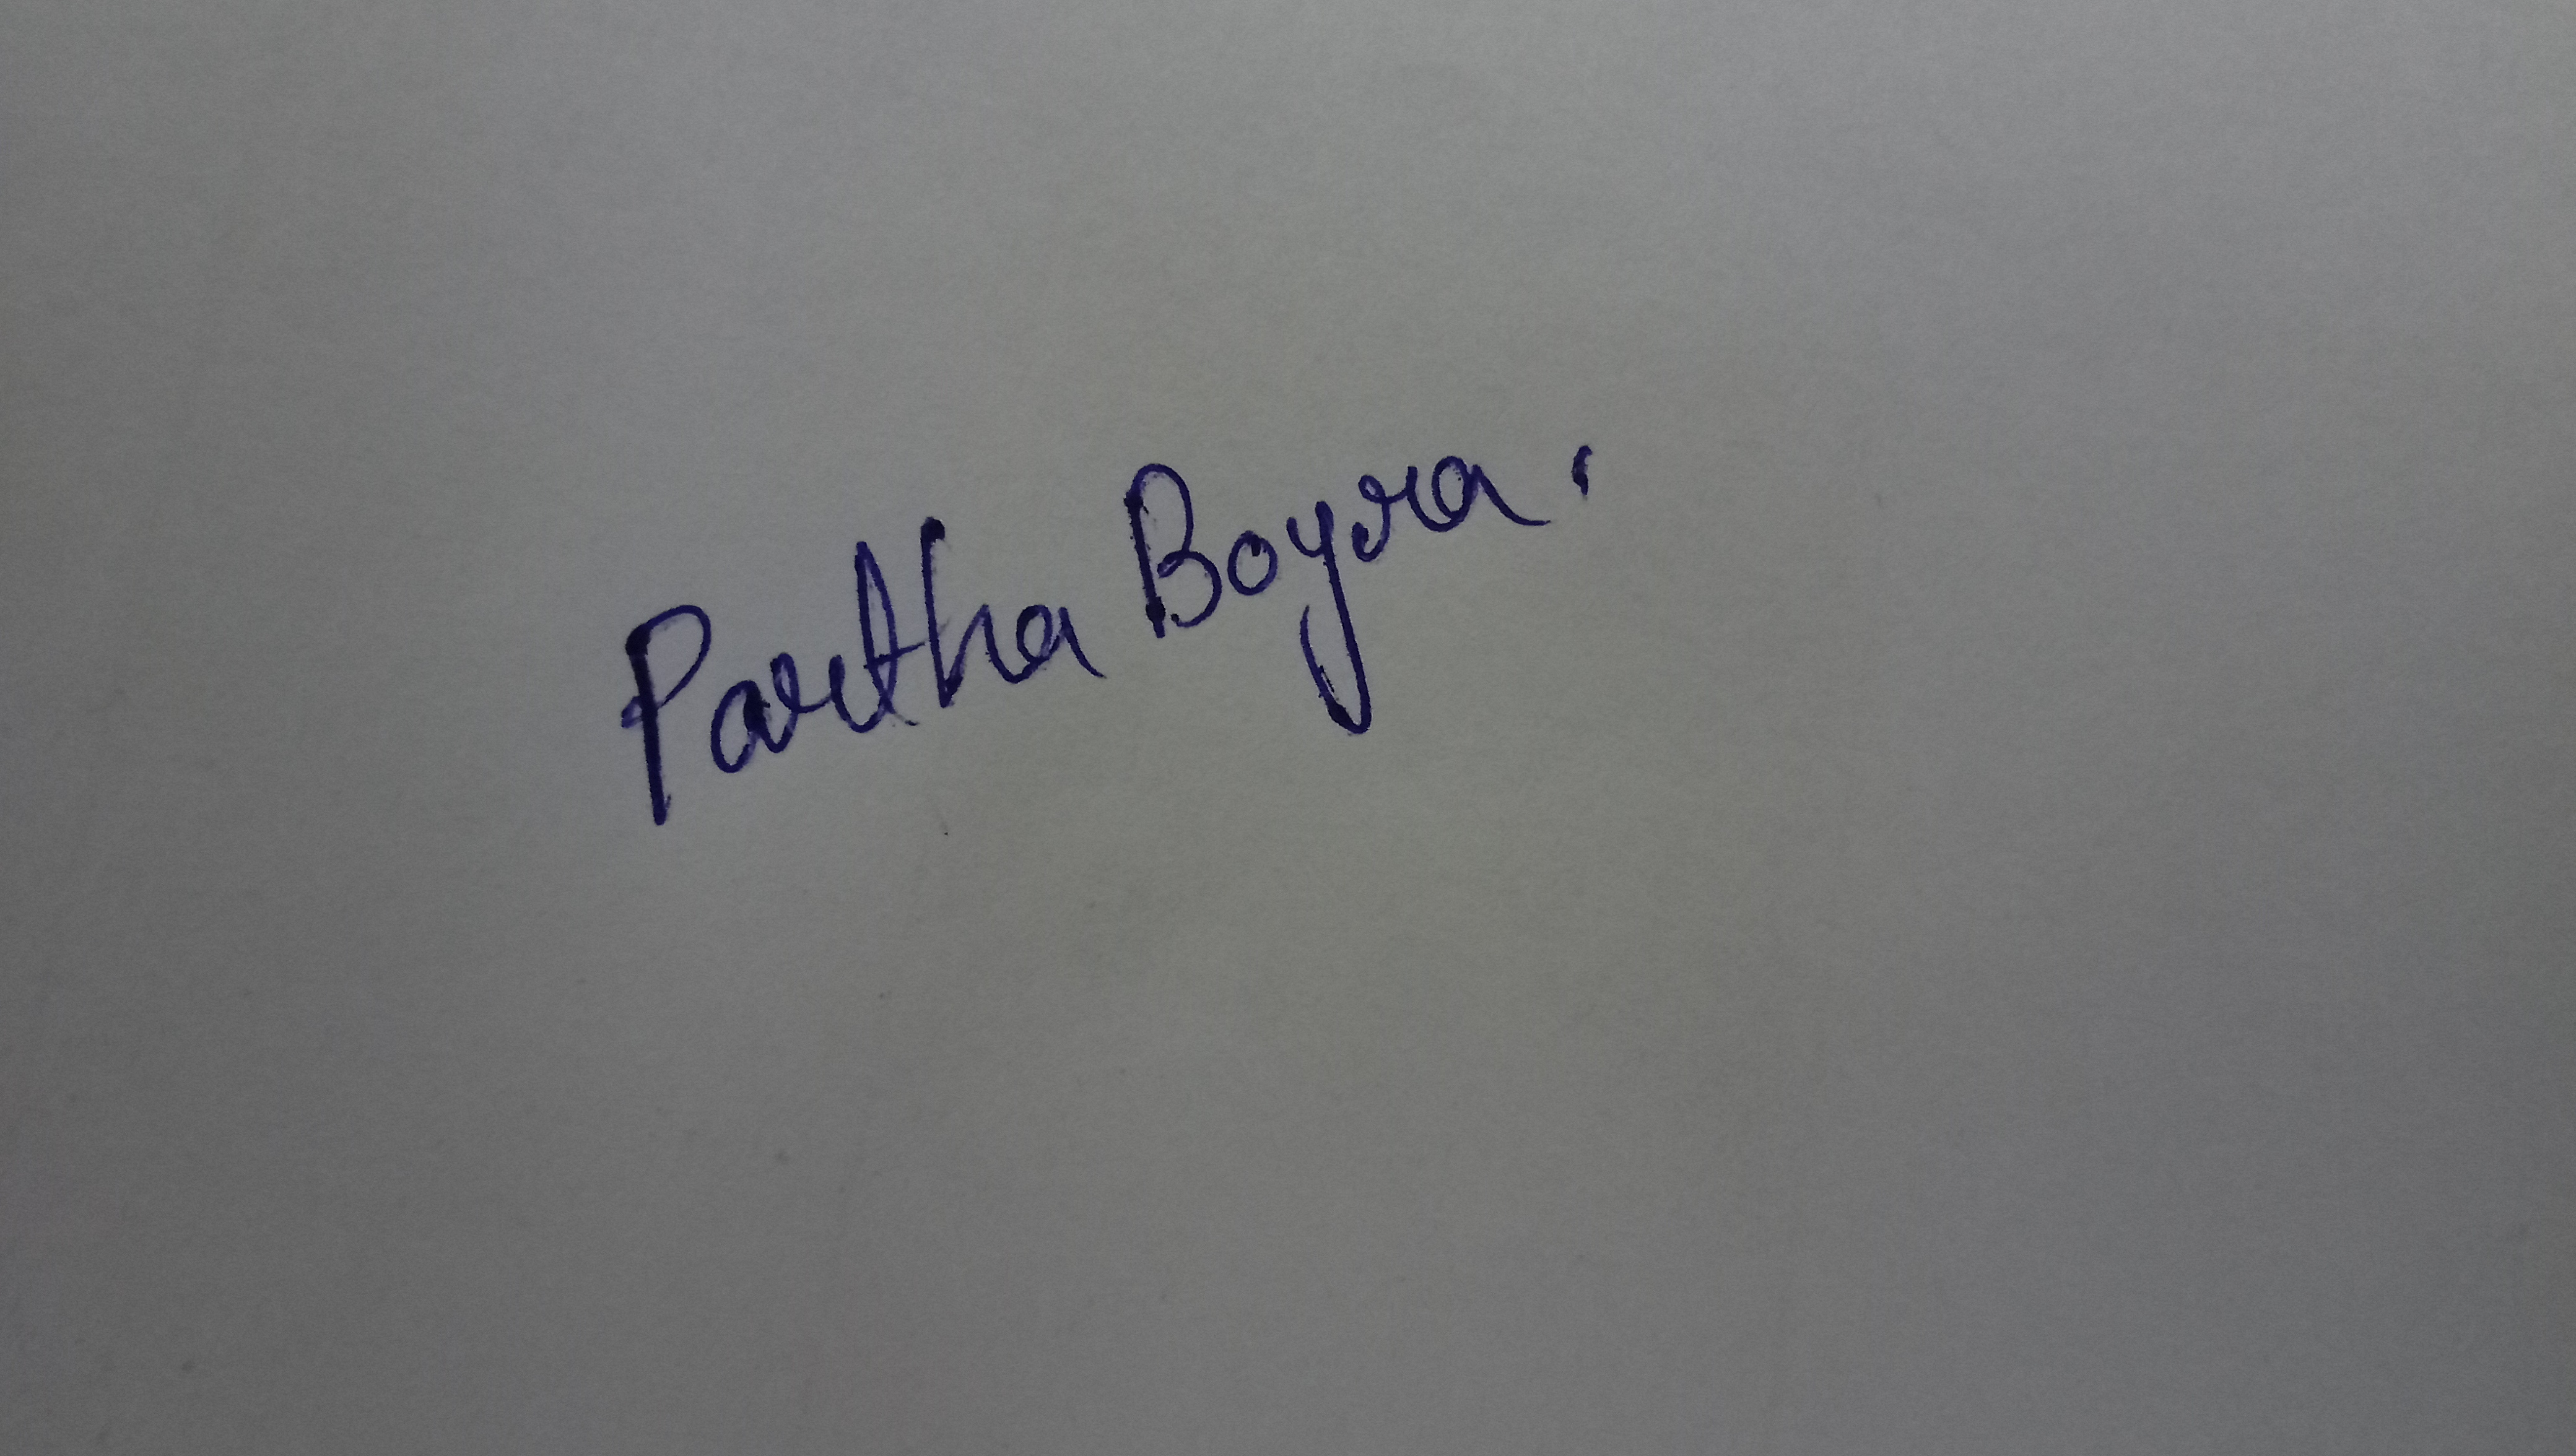 Partha Boyra.